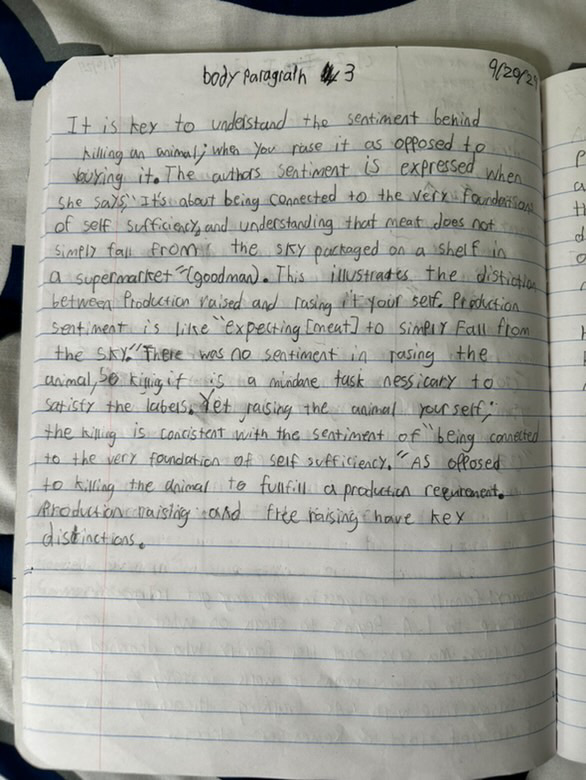 body Paragraph 3
9/20/2
It is key to undelstand the sentiment behind
killing an animal; when you rase it as opposed to
buying it. The authors sentiment is expressed when
she says, "It's about being connected to the very foundations
of self sufficiency, and understanding that meat does not
simply fall from the sky packaged on a shelf in
a supermarket" (goodman). This illustrates the distiction
between Production raised and rasing it your self. Production
sentiment is like "expecting [meat] to simply Fall from
the sky." There was no sentiment in rasing the
animal, so killig it is a mindane task nessicary to
satisty the labels. Yet raising the animal yourself;
the killing is concistent with the sentiment of "being connected
to the very foundation of self sufficiency." AS opposed
to killing the animal to fullfill a production requirement.
Production raising and free raising have key
distinctions.